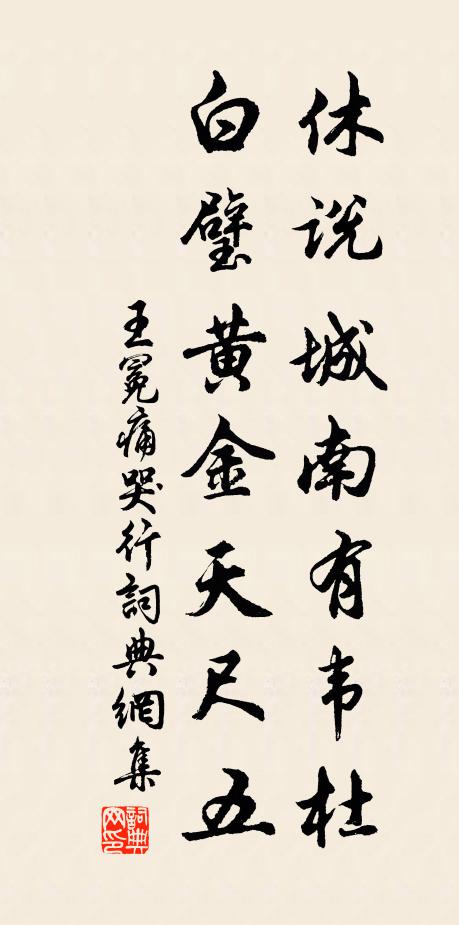 休说城南有韦杜
白璧黄金天尺五
王冕痛哭行詞典網集
詞典网印